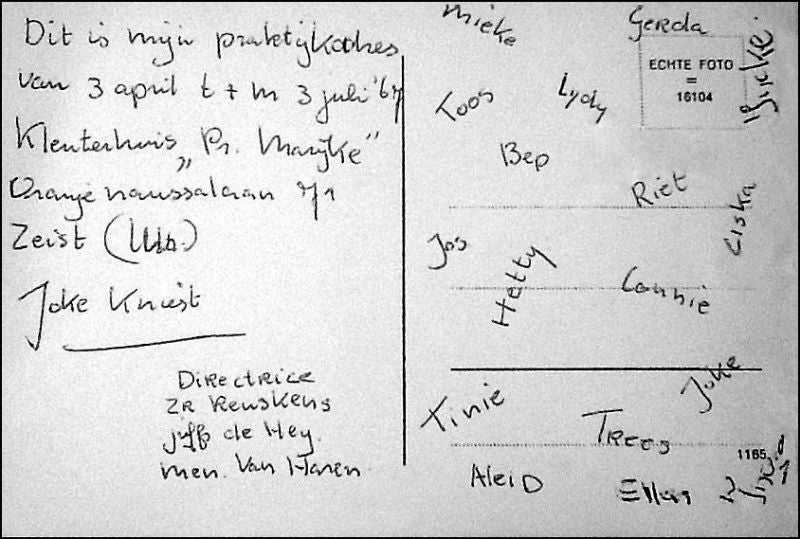 Dit is mijn praktijkadres
van 3 april t + m 3 juli '67
Kleuterhuis „Pr. Marijke"
Oranje nassaulaan 71
Zeist (Utr.)
Joke Kniest
Directrice
ZR Renskens
juff de Hey
men. Van Haren
Mieke
Gerda
ECHTE FOTO
=
16104
Toos
Lydy
Bep
Riet
Ciska
Jos
Hetty
Connie
Joke
Tinie
Trees
1165
Aleid
Ellen